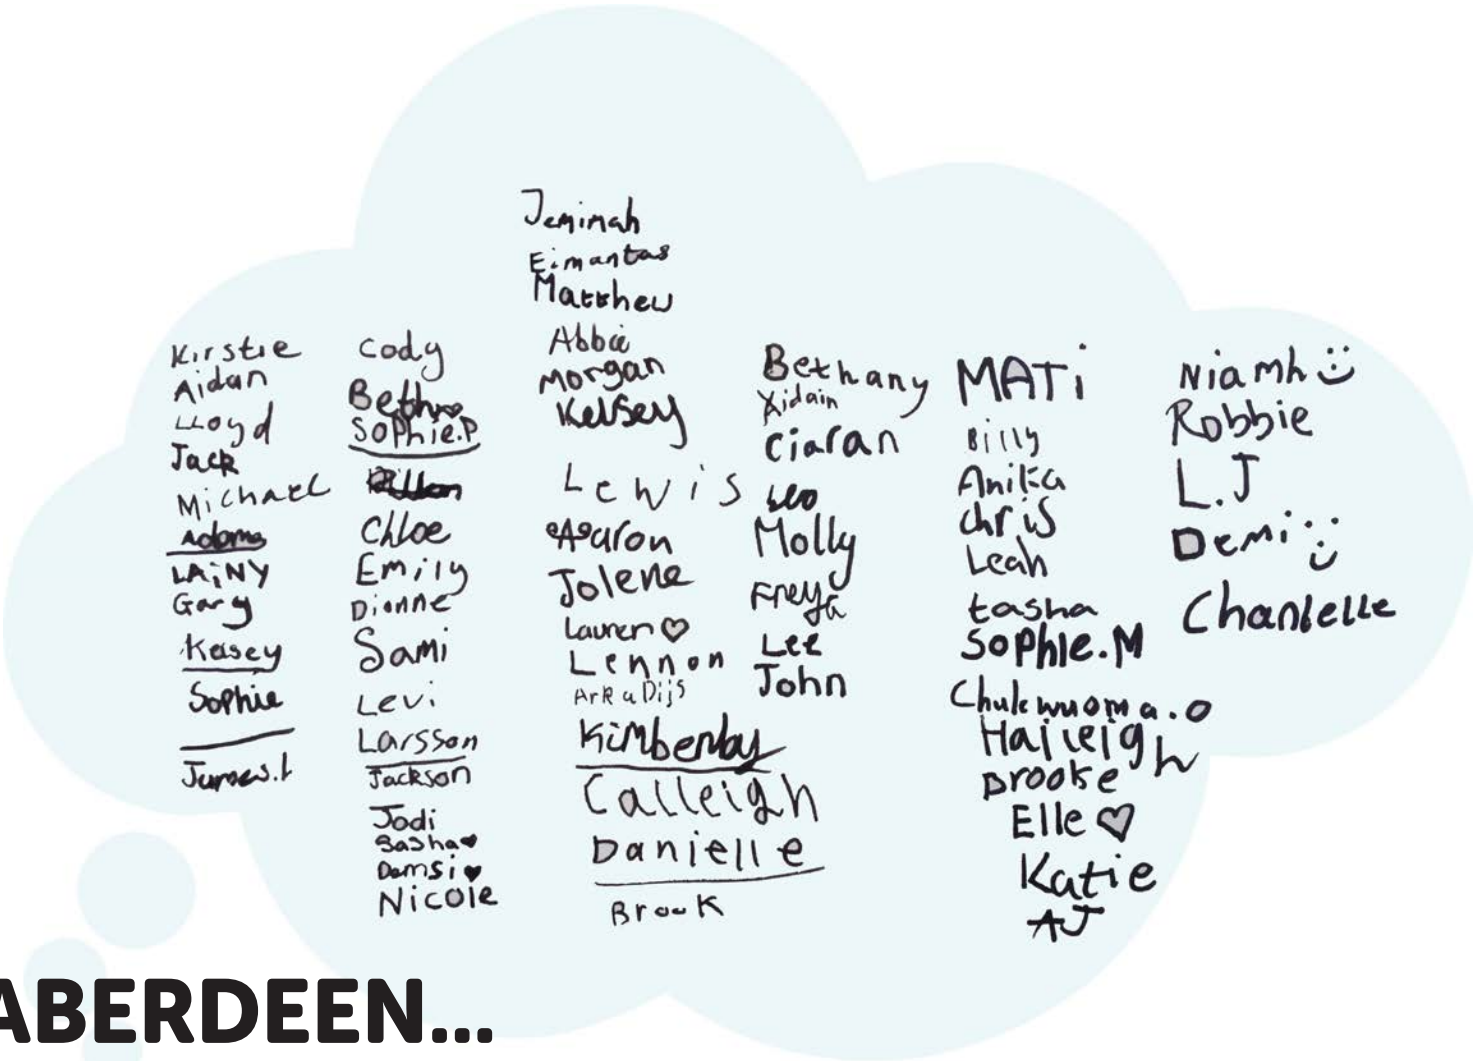 Kirstie
Aidan
Lloyd
Jack
Michael
Adams
LAiNY
Gary
Kasey
Sophie
James.L
Cody
Beth
Sophie.P
Chloe
Emily
Dionne
Sami
Levi
Larsson
Jackson
Jodi
Sasha♥
Demsi♥
Nicole
Jemimah
Eimantas
Matthew
Abbie
Morgan
Kelsey
Lewis
Aaron
Jolene
Lauren♡
Lennon
ArkaDijs
Kimberley
Calleigh
Danielle
Brook
Bethany
Aidain
Ciaran
Leo
Molly
Freya
Lee
John
MATi
Billy
Anika
Chris
Leah
tasha
Sophie.M
Chukwuoma.O
Haileigh
Brooke
Elle♡
Katie
AJ
Niamh
Robbie
L.J
Demi
Chantelle
ABERDEEN...